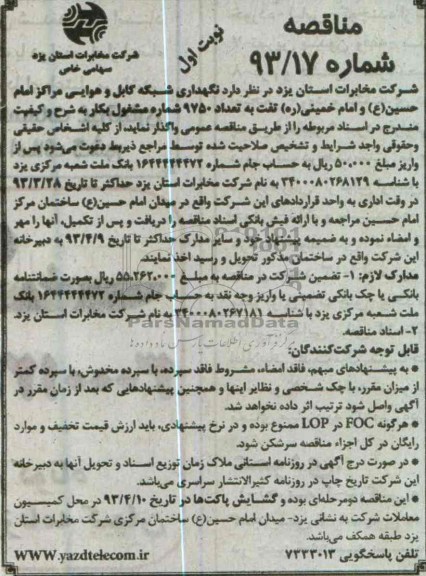 مناقصه
شماره ۹۳/۱۷
نوبت اول
شرکت مخابرات استان یزد
سهامی خاص
شرکت مخابرات استان یزد در نظر دارد نگهداری شبکه کابل و هوایی مراکز امام
حسین(ع) و امام خمینی(ره) تفت به تعداد ۹۷۵۰ شماره مشغول بکار به شرح و کیفیت
مندرج در اسناد مربوطه را از طریق مناقصه عمومی واگذار نماید، از کلیه اشخاص حقیقی
وحقوقی واجد شرایط و تشخیص صلاحیت شده توسط مراجع ذیربط دعوت می‌شود پس از
واریز مبلغ ۵۰۰،۰۰۰ ریال به حساب جام شماره ۱۶۴۴۴۴۴۴۷۲ بانک ملت شعبه مرکزی یزد
با شناسه ۳۴۰۰۰۸۰۲۶۸۱۲۹ به نام شرکت مخابرات استان یزد حداکثر تا تاریخ ۹۳/۳/۲۸
در وقت اداری به واحد قراردادهای این شرکت واقع در میدان امام حسین(ع) ساختمان مرکز
امام حسین مراجعه و با ارائه فیش بانکی اسناد مناقصه را دریافت و پس از تکمیل، آنها را مهر
و امضاء نموده و به ضمیمه پیشنهاد خود و سایر مدارک حداکثر تا تاریخ ۹۳/۴/۹ به دبیرخانه
این شرکت واقع در ساختمان مذکور تحویل و رسید اخذ نمایند.
مدارک لازم: ۱- تضمین شرکت در مناقصه به مبلغ ۵۵،۲۶۲،۰۰۰ ریال بصورت ضمانتنامه
بانکی یا چک بانکی تضمینی یا واریز وجه نقد به حساب جام شماره ۱۶۴۴۴۴۴۴۷۲ بانک
ملت شعبه مرکزی یزد با شناسه ۳۴۰۰۰۸۰۲۶۷۱۸۱ به نام شرکت مخابرات استان یزد.
۲- اسناد مناقصه.
ParsNamadData
قابل توجه شرکت‌کنندگان:
• به پیشنهادهای مبهم، فاقد امضاء، مشروط فاقد سپرده، با سپرده مخدوش، با سپرده کمتر
از میزان مقرر، با چک شخصی و نظایر اینها و همچنین پیشنهادهایی که بعد از زمان مقرر در
آگهی واصل شود ترتیب اثر داده نخواهد شد.
• هرگونه FOC در LOP ممنوع بوده و در نرخ پیشنهادی، باید ارزش قیمت تخفیف و موارد
رایگان در کل اجزاء مناقصه سرشکن شود.
• در صورت درج آگهی در روزنامه استانی ملاک زمان توزیع اسناد و تحویل آنها به دبیرخانه
این شرکت تاریخ چاپ در روزنامه کثیرالانتشار سراسری می‌باشد.
• این مناقصه دومرحله‌ای بوده و گشایش پاکت‌ها در تاریخ ۹۳/۴/۱۰ در محل کمیسیون
معاملات شرکت به نشانی یزد- میدان امام حسین(ع) ساختمان مرکزی شرکت مخابرات استان
یزد طبقه همکف می‌باشد.
تلفن پاسخگویی ۷۲۳۳۰۱۳
www.yazdtelecom.ir